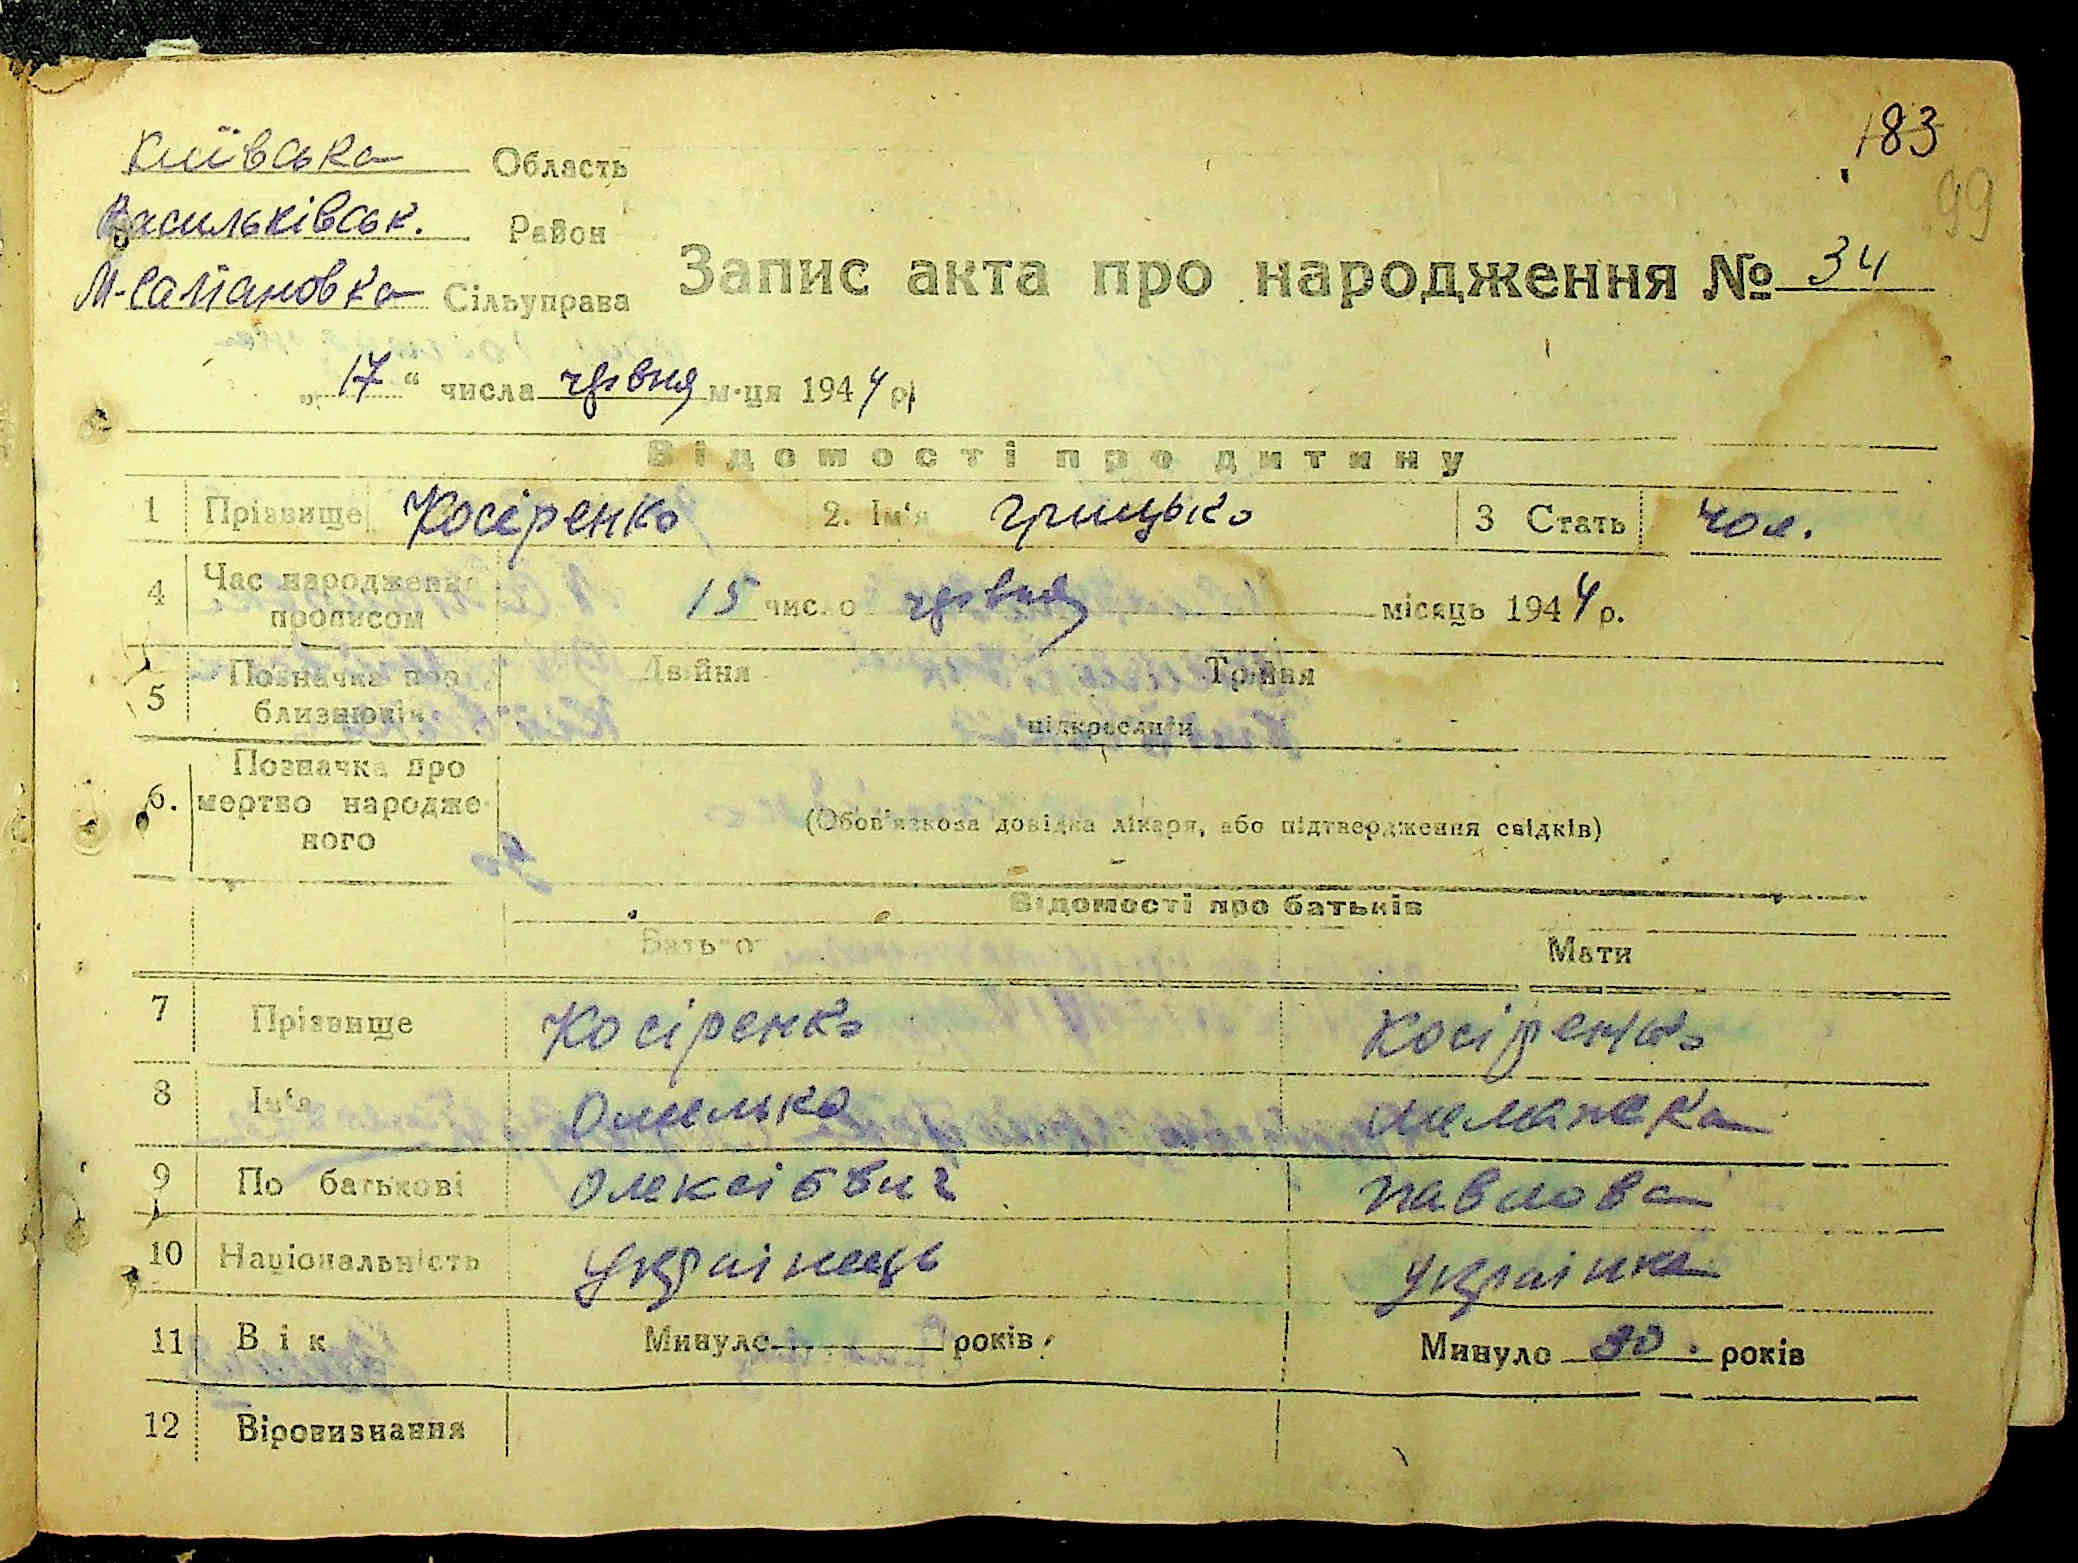 183
99
Київська Область
Васильківськ. Район
М-Салтановка Сільуправа
Запис акта про народження № 34
„17“ числа червня м-ця 1944 р.
Відомості про дитину
1 Прізвище Косіренко 2. Ім'я Грицько 3 Стать чол.
4 Час народження прописом 15 число червня місяць 1944 р.
5 Позначка про близнюків Двійня Трійня
підкреслити
6. Позначка про мертво народженого (Обов'язкова довідка лікаря, або підтвердження свідків)
Відомості про батьків
Батько Мати
7 Прізвище Косіренко Косіренко
8 Ім'я Омелько
9 По батькові Олексієвич Павлова
10 Національність Українець Українка
11 Вік Минуло років Минуло 30. років
12 Віровизнання